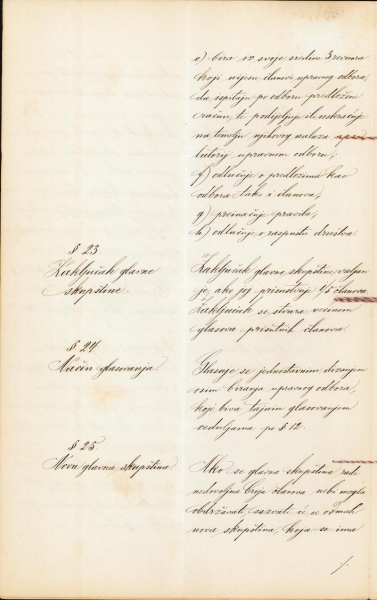 e) bira iz svoje sredine 3 revizora
koji nijesu članovi upravnog odbora,
da ispitaju po odboru predložen
račun, te podijeljuje ili uskraćuje
na temelju njihovog nalaza
upravnom odboru;
f) odlučuje o predlozima kao
odbora tako i članova;
g) preinačuje pravila;
h) odlučuje o raspustu društva.
§ 23.
Zaključak glavne
skupštine.
Zaključak glavne skupštine valjan
je, ako joj prisustvuje 1/5 članova.
Zaključak se stvara većinom
glasova prisutnih članova.
§ 24.
Način glasovanja
Glasuje se jednostavnim dizanjem
osim biranja upravnog odbora,
koje biva tajnim glasovanjem
ceduljama po § 12.
§ 25
Nova glavna skupština
Ako se glavna skupština radi
nedovoljna broja članova nebi mogla
obdržavati, sazvati će se odmah
nova skupština, koja se ima